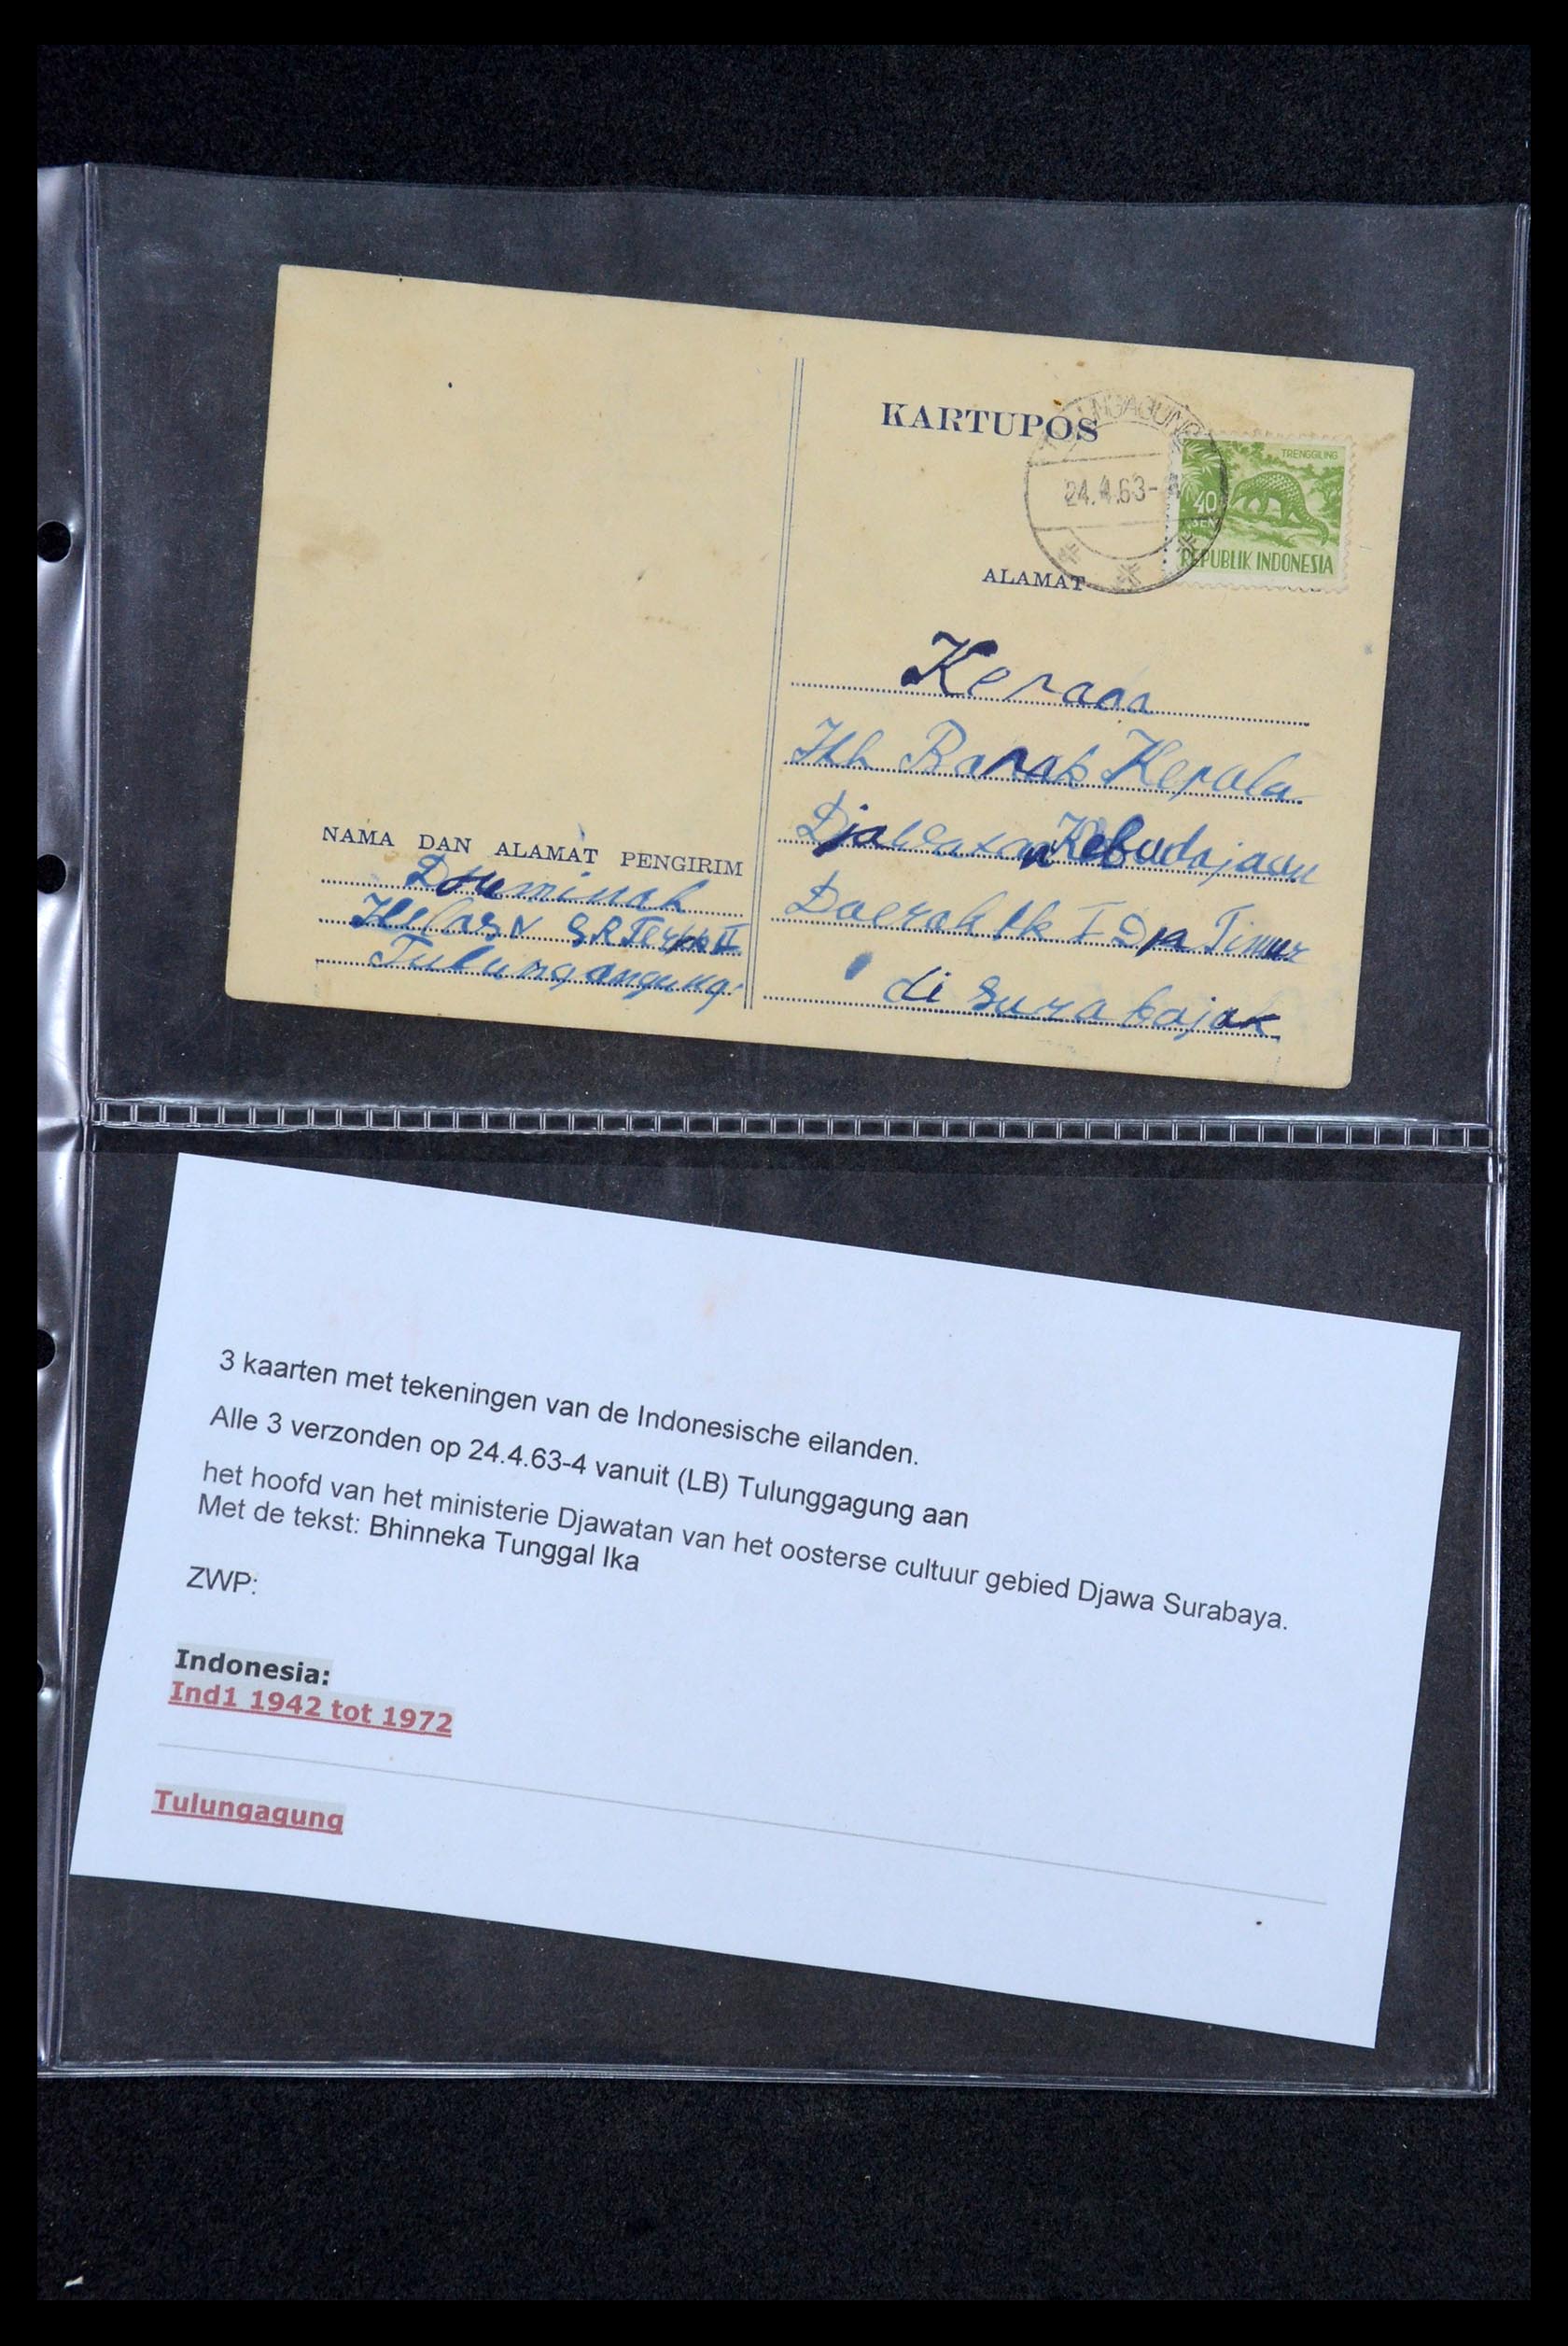 KARTUPOS
TULUNGAGUNG
24.4.63-
TRENGGILING
40
SEN
REPUBLIK INDONESIA
ALAMAT
Jth Bapak Kepala
Djawatan Kebudajaan
Daerah tk I Dja Timur
di Surabajak
NAMA DAN ALAMAT PENGIRIM
Djuminah
Kelas V S.R Tertek II
Tulungangung
3 kaarten met tekeningen van de Indonesische eilanden.
Alle 3 verzonden op 24.4.63-4 vanuit (LB) Tulunggagung aan
het hoofd van het ministerie Djawatan van het oosterse cultuur gebied Djawa Surabaya.
Met de tekst: Bhinneka Tunggal Ika
ZWP:
Indonesia:
Ind1 1942 tot 1972
Tulungagung